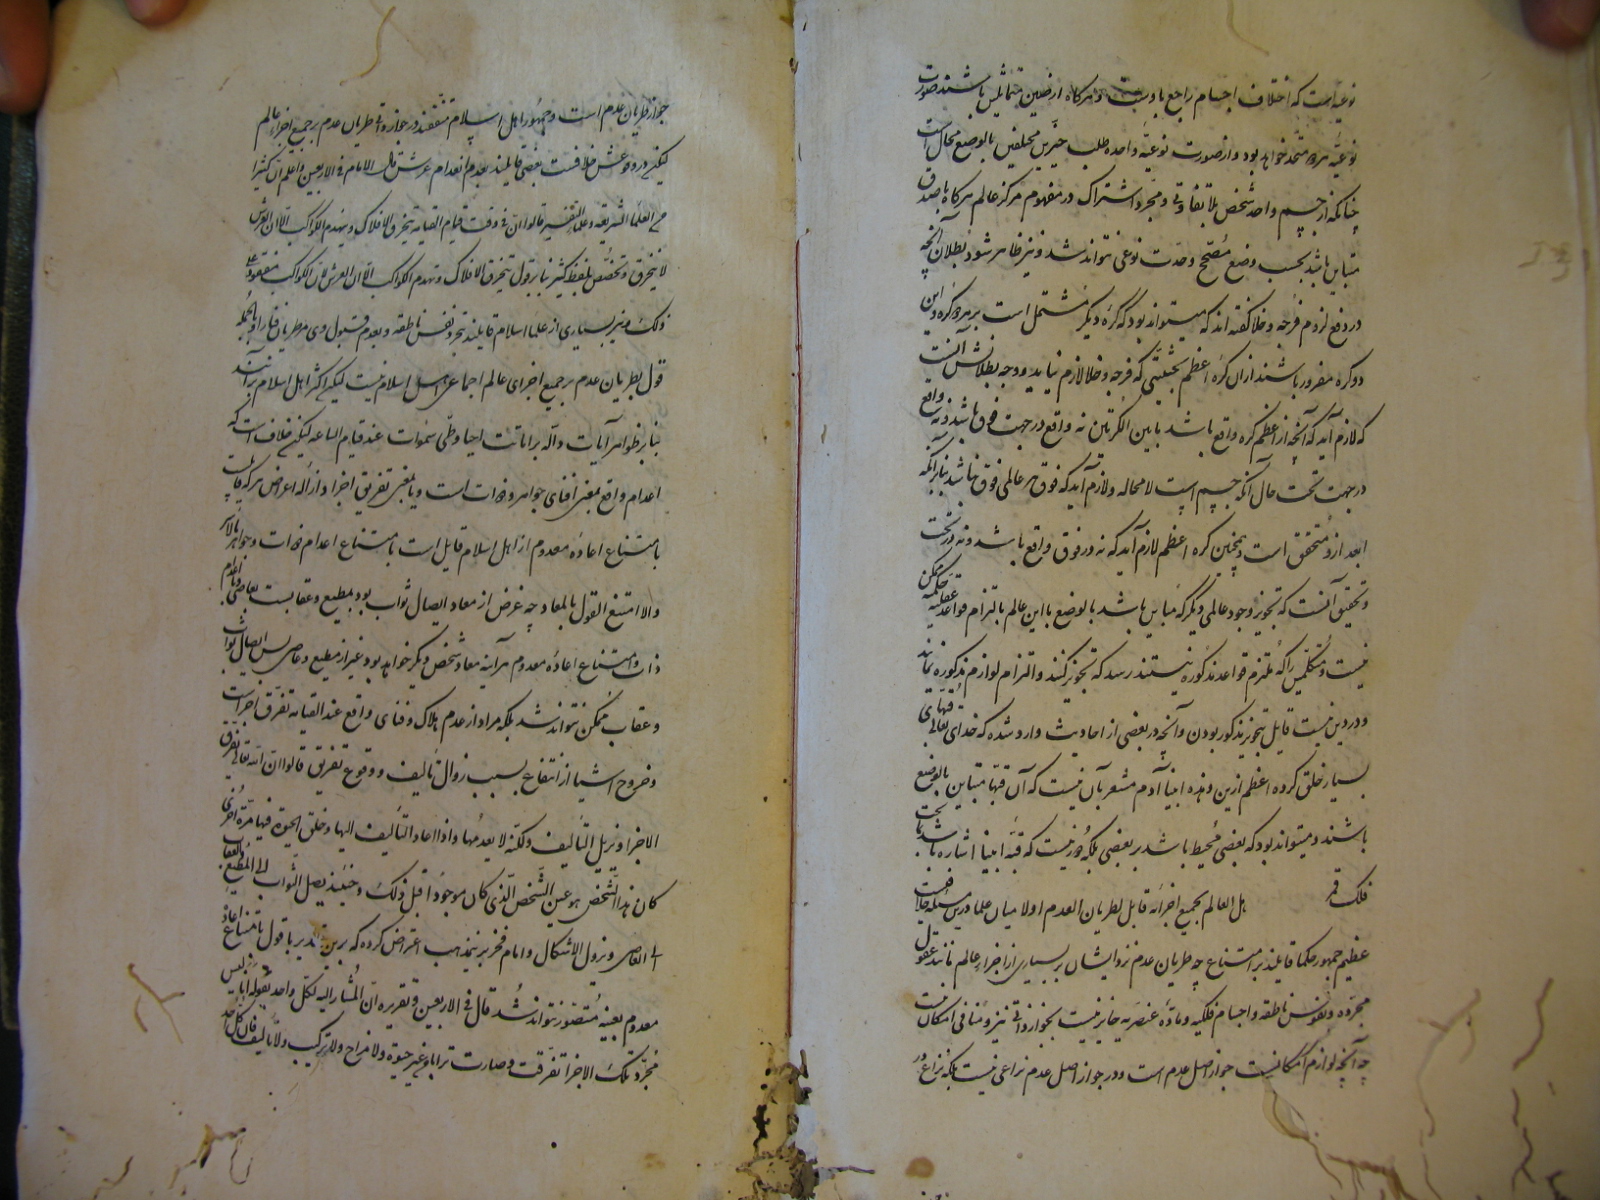 نوعیه است که اختلاف اجسام راجع باوست و هرکاه ارضین متماثلین باشند صورت
نوعیه هر دو متحد خواهد بود و از صورت نوعیه واحده طلب حیزین مختلفین بالوضع محال است
چنانکه از جسم واحد شخص بلا تفاوتی و مجرد اشتراک در مفهوم مرکز عالم هرکاه ما صدق
متباین باشد بحسب وضع مصحح وحدت نوعی نتواند شد و نیز ظاهر شود بطلان آنچه
در دفع لزوم فرجه و خلا کفته اند که میتواند بود که کره دیکر مشتمل است بر هر دو کره و این
دو کره مغرور باشند از ان کره اعظم بحیثیتی که فرجه و خلا لازم نیاید و وجه بطلانش آنست
که لازم آید که آنچه از اعظم کره واقع باشد ما بین الکرتین نه واقع در جهت فوق باشد و نه واقع
در جهت تحت حال آنکه جسم است لا محاله و لازم آید که فوق هر عالمی فوق نباشد بنابر آنکه
ابعد ازو متحقق است و همچنین کره اعظم لازم آید که نه در فوق واقع باشد و نه در تحت
و تحقیق آنست که تجویز وجود عالمی دیکر که مباین باشد بالوضع با این عالم با التزام قواعد حکمیه عقلیه ممکن
نیست و متکلمین را که ملتزم قواعد مذکوره نیستند رسد که تجویز کنند و التزام لوازم مذکوره نمایند
و در دین نیست قایل بتجویز مذکور بودن و آنچه در بعضی از احادیث وارد شده که خدای تعالی قبهای
بسیار خلق کرده اعظم ازین و هذه ابینا آدم مشعر بآن نیست که آن قبها متباین بالوضع
باشند و میتواند بود که بعضی محیط باشد بر بعضی بلکه دور نیست که قبه ابینا اشاره باشد بما تحت
فلک قمر هل العالم بجمیع اجزائه قابل لطریان العدم اولا میان علما درین مسئله خلافیست
عظیم جمهور حکما قایلند بر امتناع چه طریان عدم نزد ایشان بر بسیاری از اجزاء عالم مانند عقول
مجرده و نفوس ناطقه و اجسام فلکیه و ماده عنصریه جایز نیست بجواز وقوعی نیز و منافی امکان نیست
چه آنچه لوازم امکانیست جواز اصل عدم است و در جواز اصل عدم نزاعی نیست بلکه نزاع در
جواز طریان عدم است و جمهور اهل اسلام متفقند در جواز وقوعی طریان عدم بر جمیع اجزاء عالم
لیکن در وقوعش خلافست بعضی قایلند بعدم انعدام عرش قال الامام فی الاربعین و اعلم ان کثیرا
من العلماء الشریعه و علماء التفسیر قالوا ان فی وقت قیام القیامه یتخرق الافلاک و ینهدم الکواکب الا ان العرش
لا یتخرق و تخصص بلفظ کثیر بنا بر قول بتخرق الافلاک و تهدم الکواکب الا ان العرش لان الکواکب
ذلک و نیز بسیاری از علما اسلام قایلند بتجرد نفس ناطقه و بعدم قبول وی مر طریان فنا را و بالجمله
قول بطریان عدم بر جمیع اجزای عالم اجماعی اهل اسلام نیست لیکن اکثر اهل اسلام بر آنند
بنا بر ظواهر آیات داله بر اماتت احیا و طی سموات عند قیام الساعه لیکن خلاف است که
اعدام واقع بمعنی افنای جواهر و ذوات است و یا بمعنی تفریق اجزا و ازاله اعراض هر که قایلست
بامتناع اعاده معدوم از اهل اسلام قایل است بامتناع اعدام ذوات و جواهر بالاسر
والا امتنع القول بالمعاد چه غرض از معاد ایصال ثواب بود بمطیع و عقابست بعاصی و با اعدام
ذات و امتناع اعاده معدوم هر آینه معاد شخص دیکر خواهد بود غیر از مطیع و عاصی پس ایصال ثواب
و عقاب ممکن نتواند شد بلکه مراد از عدم هلاک و فنای واقع عند القیامه تفرق اجزاست
و خروج اشیا از انتفاع بسبب زوال تالیف و وقوع تفریق قالوا ان الله تعالی یفرق
الاجزا و یزیل التالیف ولکنه لا یعدمها و اذا اعاد التالیف الیها و خلق الحیوة فیها مرة اخری
کان هذا الشخص هو عین الشخص الذی کان موجودا قبل ذلک و حینئذ یصل الثواب الی المطیع والعقاب
الی العاصی و یزول الاشکال و امام فخر برین مذهب اعتراض کرده که برین تقدیر با قول بامتناع اعاده
معدوم بعینه متصور نتواند شد قال فی الاربعین و تقریره ان المشار الیه لکل واحد بقوله انا لیس
مجرد تلک الاجزا تفرقت و صارت ترابا من غیر حیوة ولا مزاج ولا ترکیب ولا تالیف فان کل احد